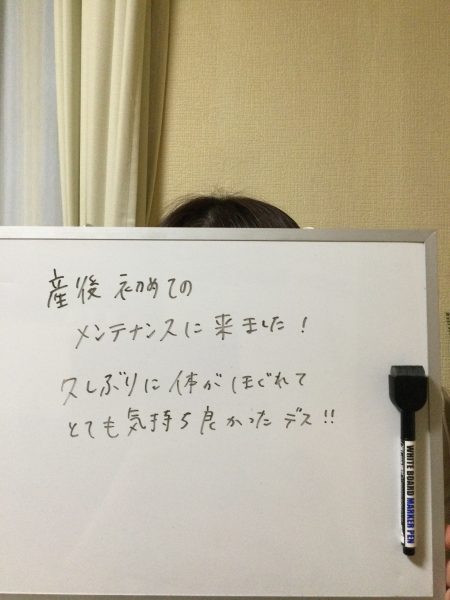 産後 初めての
メンテナンスに来ました!
久しぶりに体がほぐれて
とても気持ち良かったデス!!
WHITE BOARD MARKER PEN